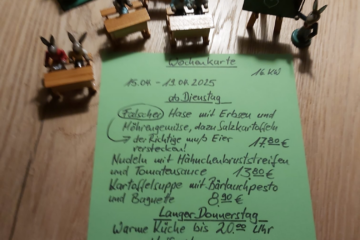 Wochenkarte
16 KW
15.04. - 19.04.2025
ab Dienstag
Falscher Hase mit Erbsen und
Möhrengemüse, dazu Salzkartoffeln
→ der Richtige muß Eier 17,80 €
verstecken!
Nudeln mit Hähnchenbruststreifen
und Tomatensauce 13,80 €
Kartoffelsuppe mit Bärlauchpesto
und Baguette 8,90 €
Langer Donnerstag
Warme Küche bis 20.00 Uhr